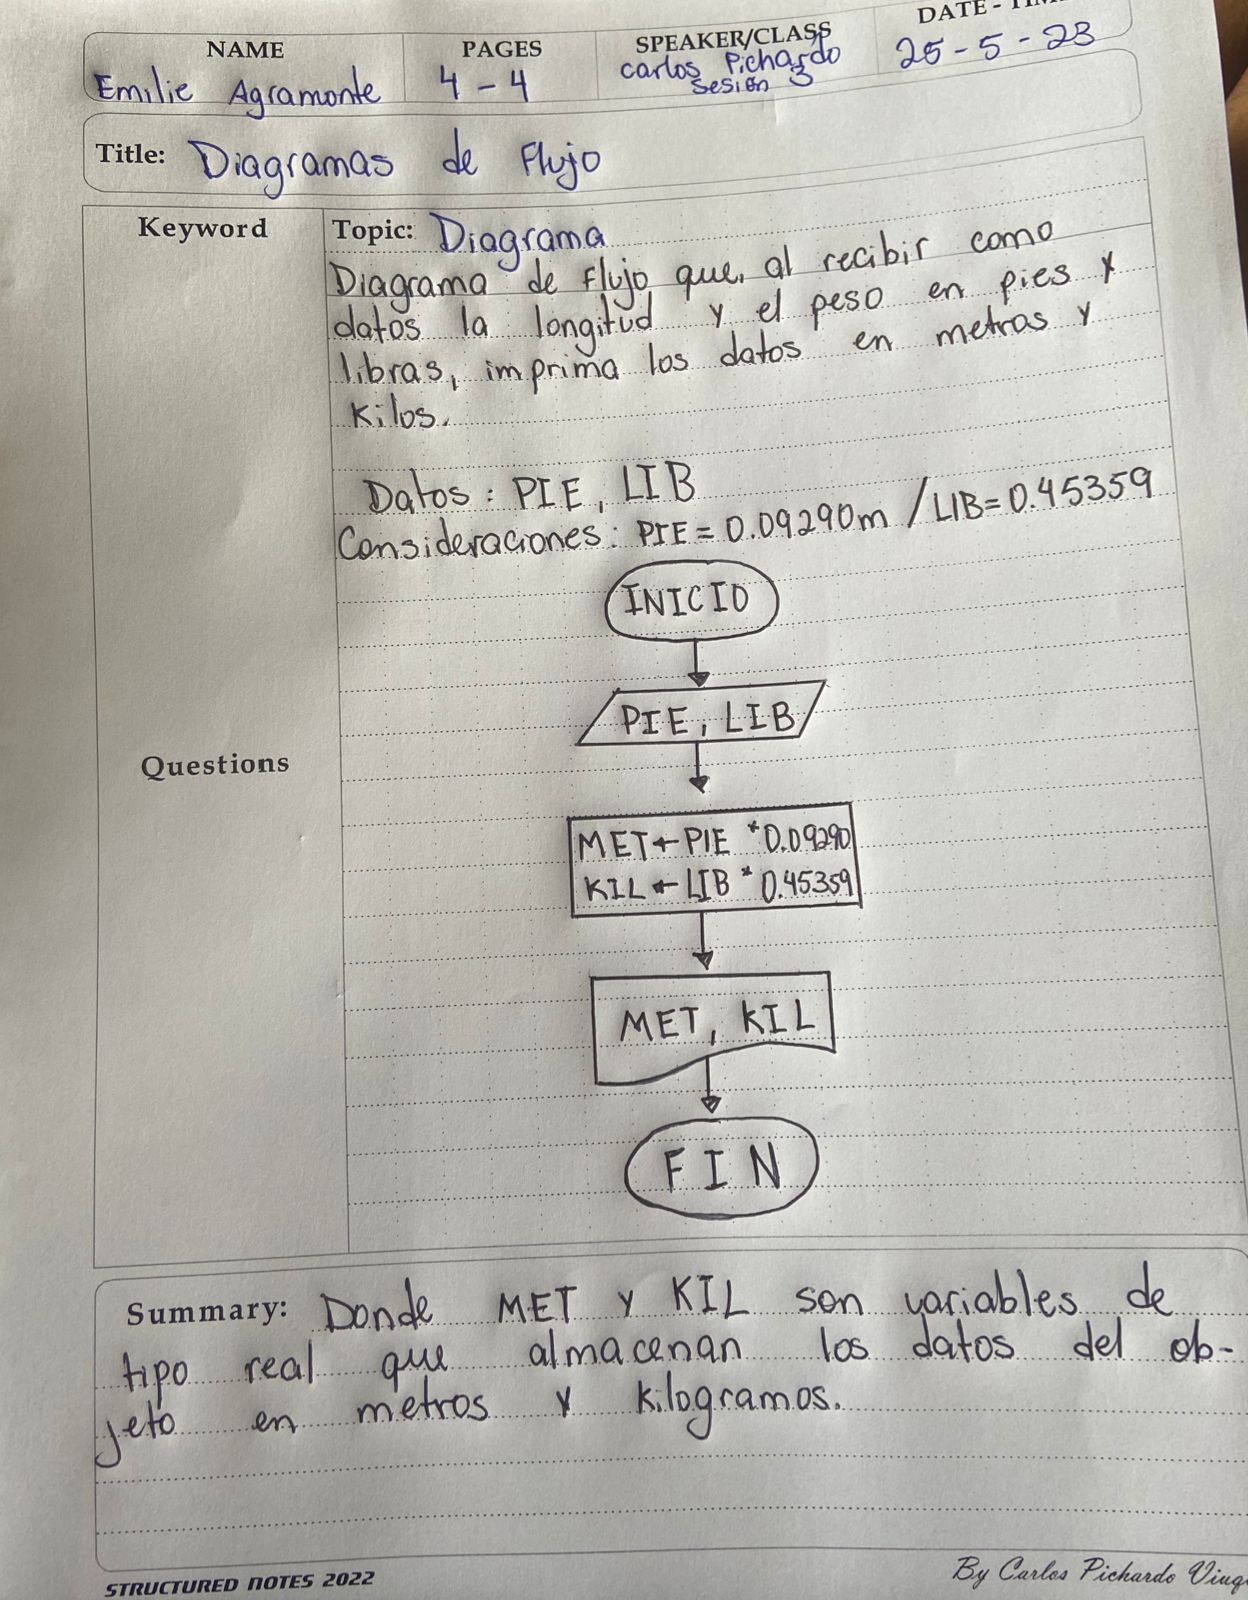 NAME PAGES SPEAKER/CLASS DATE - TIM
Emilie Agramonte 4 - 4 Carlos Pichardo 25 - 5 - 23
Sesión 3
Title: Diagramas de Flujo
Keyword Topic: Diagrama
Diagrama de Flujo que, al recibir como
datos la longitud y el peso en pies y
libras, imprima los datos en metras y
Kilos.
Datos: PIE, LIB
Consideraciones: PIE = 0.09290m / LIB=0.45359
INICIO
PIE, LIB
Questions
MET←PIE *0.09290
KIL←LIB * 0.45359
MET, KIL
FIN
Summary: Donde MET y KIL son variables de
tipo real que almacenan los datos del ob-
jeto en metros y kilogramos.
STRUCTURED NOTES 2022 By Carlos Pichardo Viuq